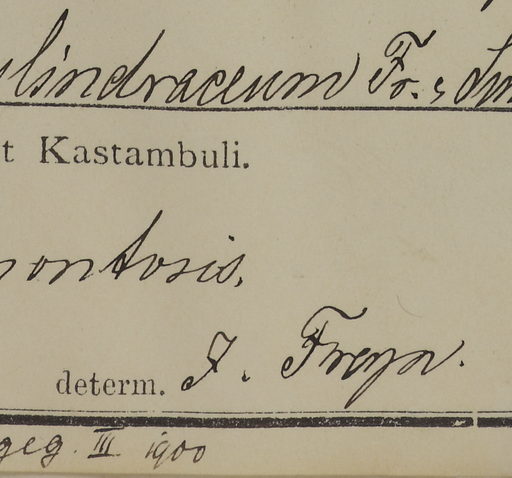 ylindraceum Fr. & Sin
t Kastambuli.
montosis.
determ. J. Freyn.
geg. III 1900